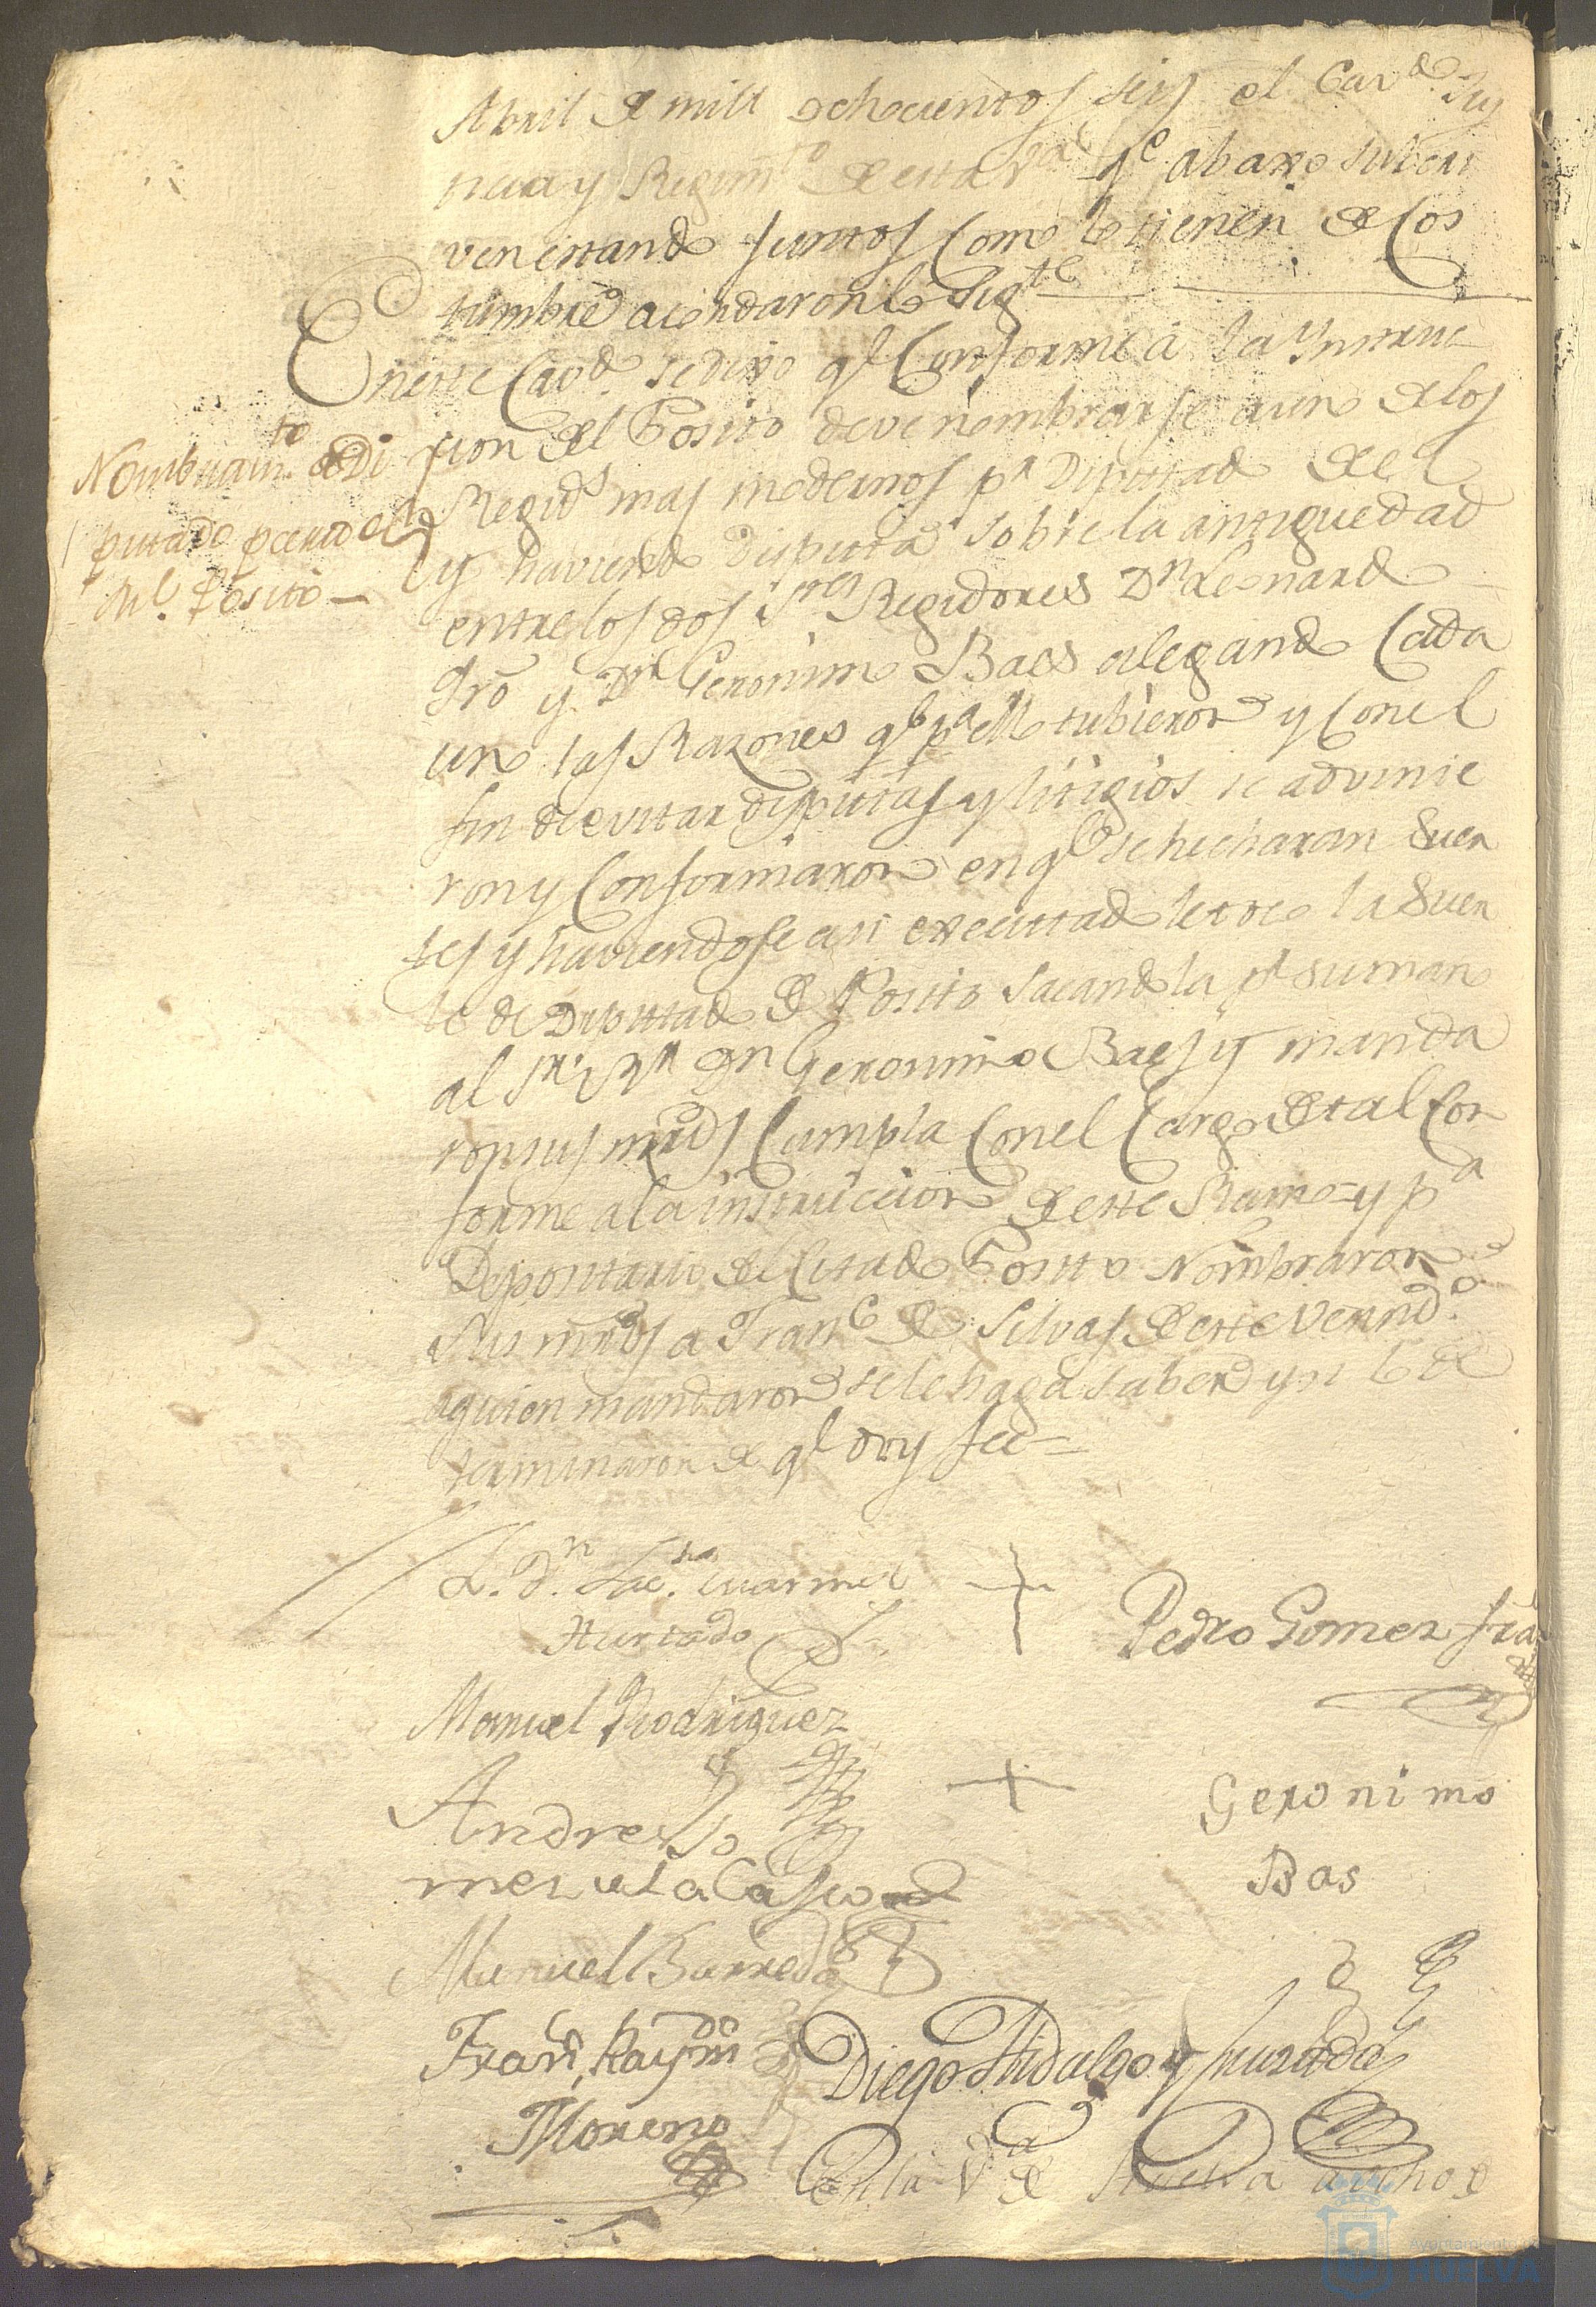 Abril de mill ochocientos seis el Cav.do Jus
ticia y Regim.to de esta V.a q.e abaxo subcri
ven estando juntos Como lo tienen de Cos
tumbre acordaron lo sig.te
En este Cav.do se dixo q.e Conforme a la Ynstruc
cion del Posito deve nombrarse a uno de los
Regid.s mas modernos p.a Diputado de el
y haviendo disputa sobre la antiguedad
entre los dos S.res Regidores D.n Leonardo
y D.n Geronimo Baes alegando Cada
uno las Razones q.e p.a ello tubieron y Con el
fin de evitar disputas y litigios se advinie
ron y Conformaron en q.e se hecharan Suer
tes y haviendose asi executado le toco la Suer
te de Diputado de Posito sacandola p.r su mano
al S.r D.n Geronimo Baes y manda
ron sus mrds Cumpla Con el Cargo de tal Con
forme a la instruccion de este Ramo y p.a
Depositario del Citado Posito Nombraron
sus mrds a Fran.co de Silvas de este Vecind.o
a quien mandaron se le haga saber y asi lo de
terminaron de q.e doy fee=
Nombram.to de Di
putado p.a
del Posito
L. D.n
Hurtado
Pedro Gomez
Manuel Rodriguez
Andres Go
mez de la Casco
Geronimo
Bas
Manuel Barreda
Fran.co Raym.do
Moreno
Diego Hidalgo y Hurtado
En la V.a de Huelva a ocho de
Ayuntamiento de
HUELVA